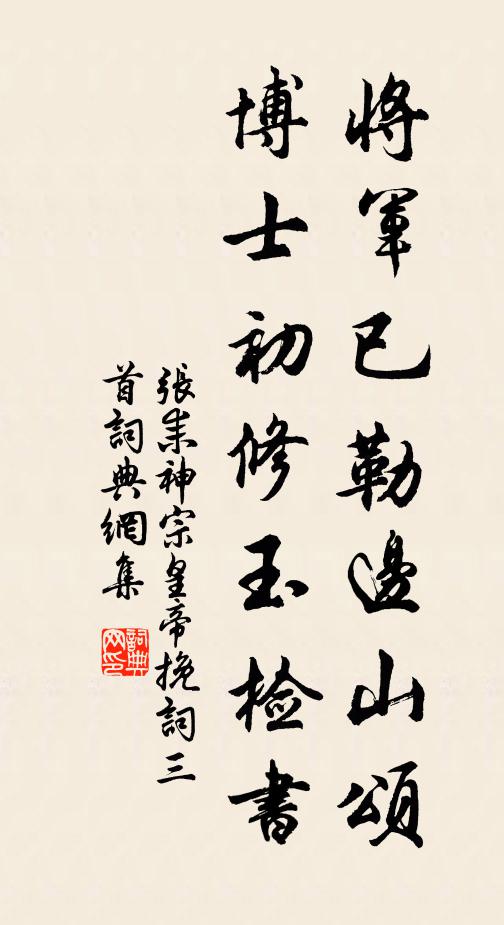 將軍已勒邊山頌
博士初修玉檢書
張耒神宗皇帝挽詞三
首詞典網集
詞典
网印